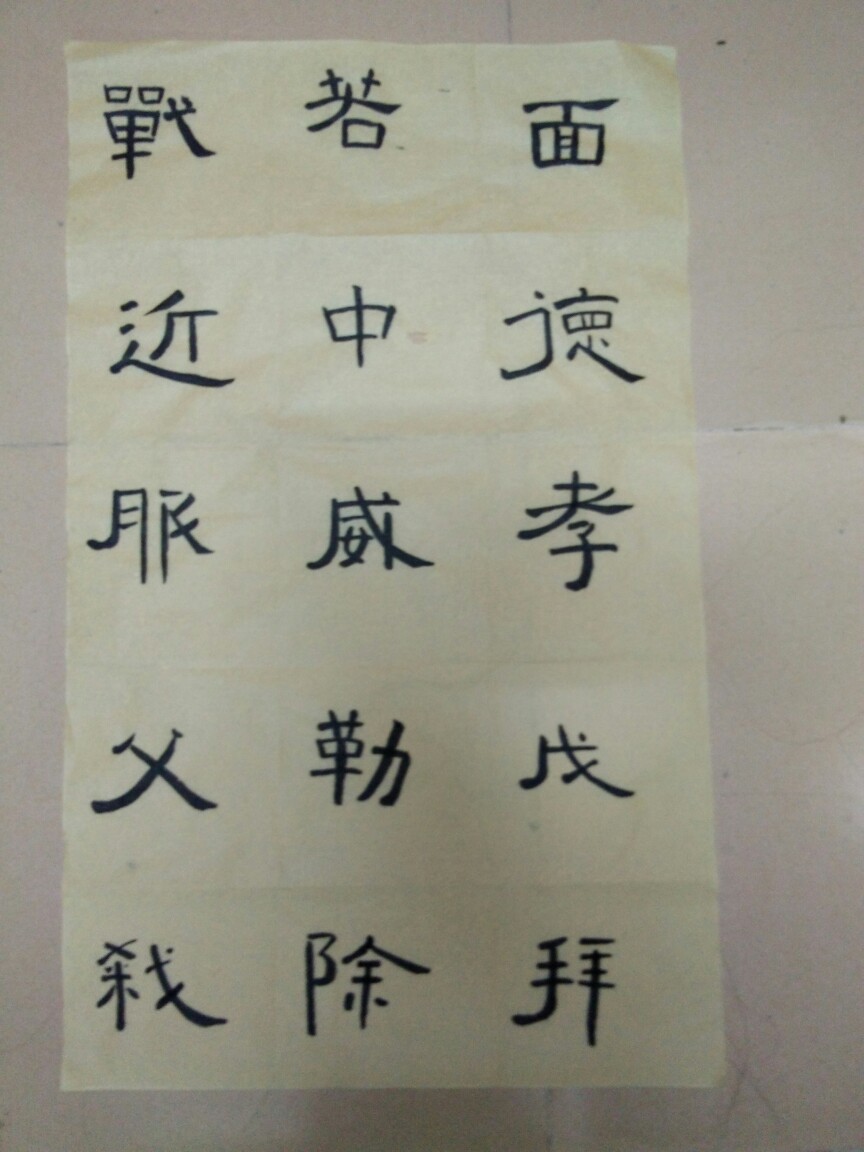 面德孝戊拜
若中威勒除
戰近服父殺